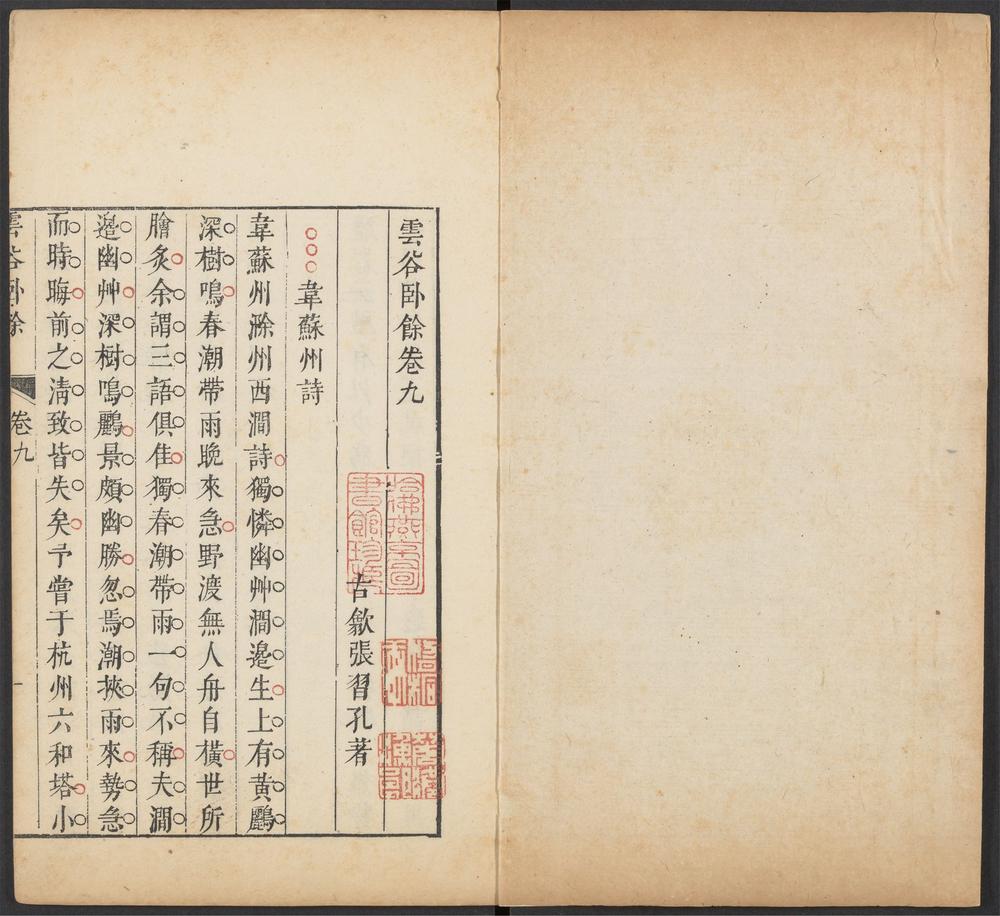 雲谷卧餘卷九
哈佛燕京圖
書館珍藏印
古歙張習孔著
韋蘇州詩
韋蘇州滁州西澗詩獨憐幽艸澗邉生上有黄鸝
深樹鳴春潮帶雨晚來急野渡無人舟自橫世所
膾炙余謂三語俱佳獨春潮帶雨一句不稱夫澗
邉幽艸深樹鳴鸝景頗幽勝忽焉潮挾雨來勢急
而時晦前之淸致皆失矣予嘗于杭州六和塔小
雲谷卧餘
卷九
一